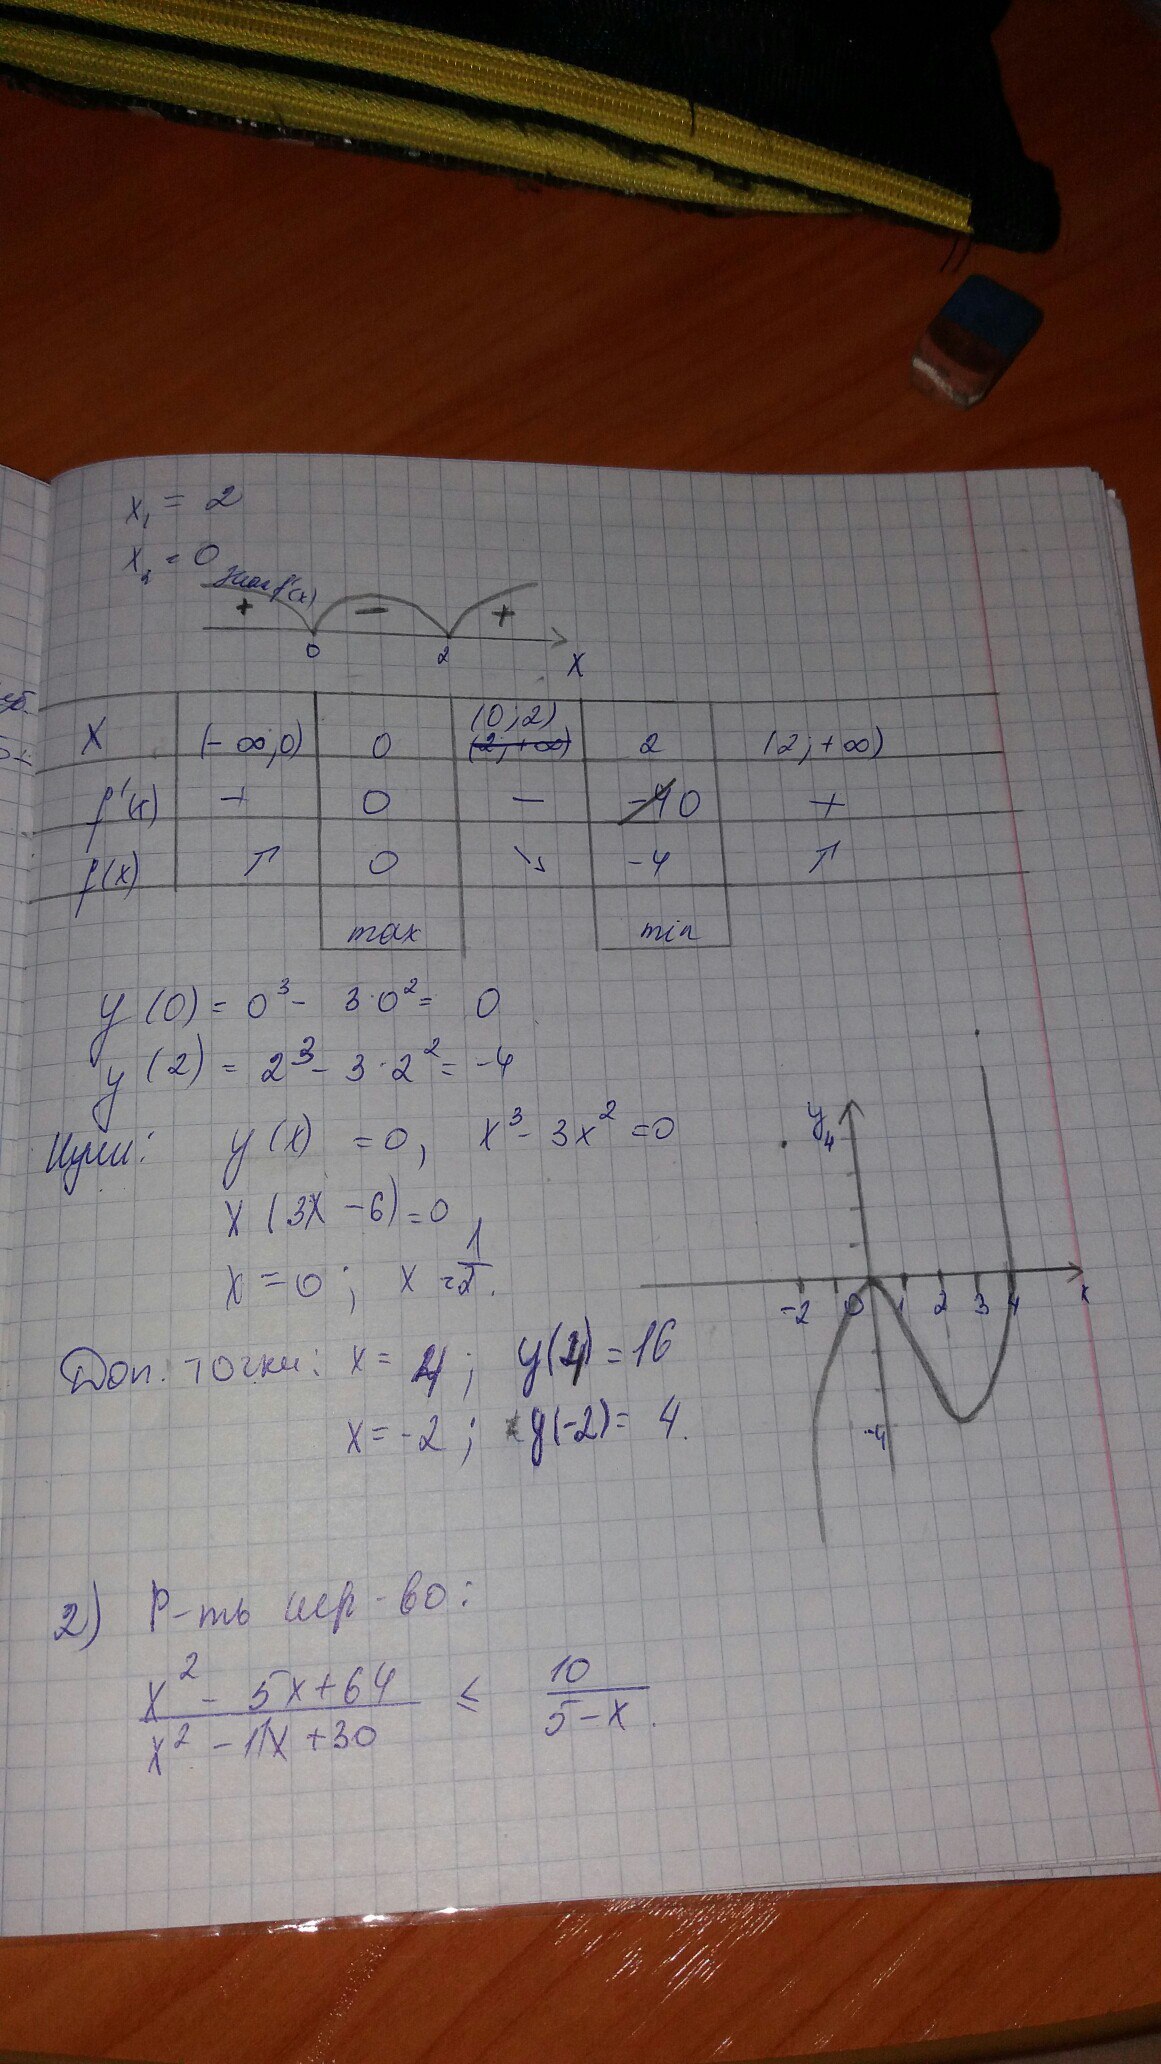 x₁ = 2
x₂ = 0
f'(x)
+ − +
0 2 x
x (-∞;0) 0 (0;2) 2 (2;+∞)
f'(x) + 0 − 0 +
f(x) ↗ 0 ↘ -4 ↗
max min
y(0) = 0³ - 3·0² = 0
y(2) = 2³ - 3·2² = -4
Нули: y(x) = 0, x³ - 3x² = 0
x(3x - 6) = 0
x = 0; x = 1/2.
Доп. точки: x = 4; y(4) = 16
x = -2; y(-2) = 4.
y 4
-2 0 1 2 3 4 x
-4
2) Р-ть нер-во:
(x² - 5x + 64)/(x² - 11x + 30) ≤ 10/(5 - x).